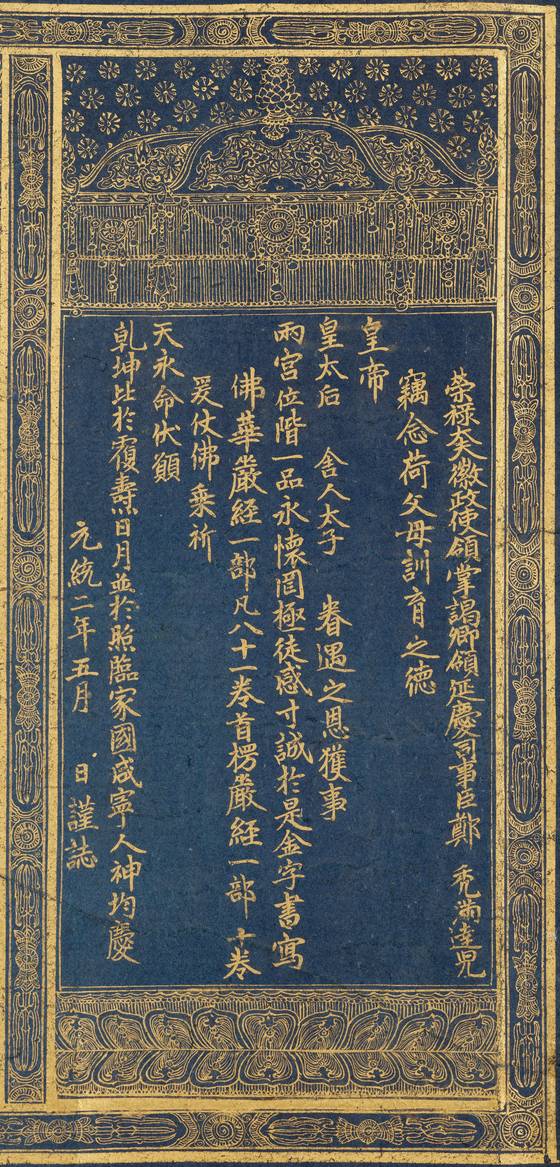 榮祿大夫徽政使領掌謁卿領延慶司事臣鄭 禿滿達兒
竊念荷父母訓育之德
皇帝
皇太后 舍人太子 眷遇之恩獲事
兩宮位階一品永懷罔極徒感寸誠於是金字書寫
佛華嚴經一部凡八十一卷首楞嚴經一部十卷
爰仗佛乘祈
天永命伏願
乾坤比於覆燾日月並於照臨家國咸寧人神均慶
元統二年五月 日謹誌